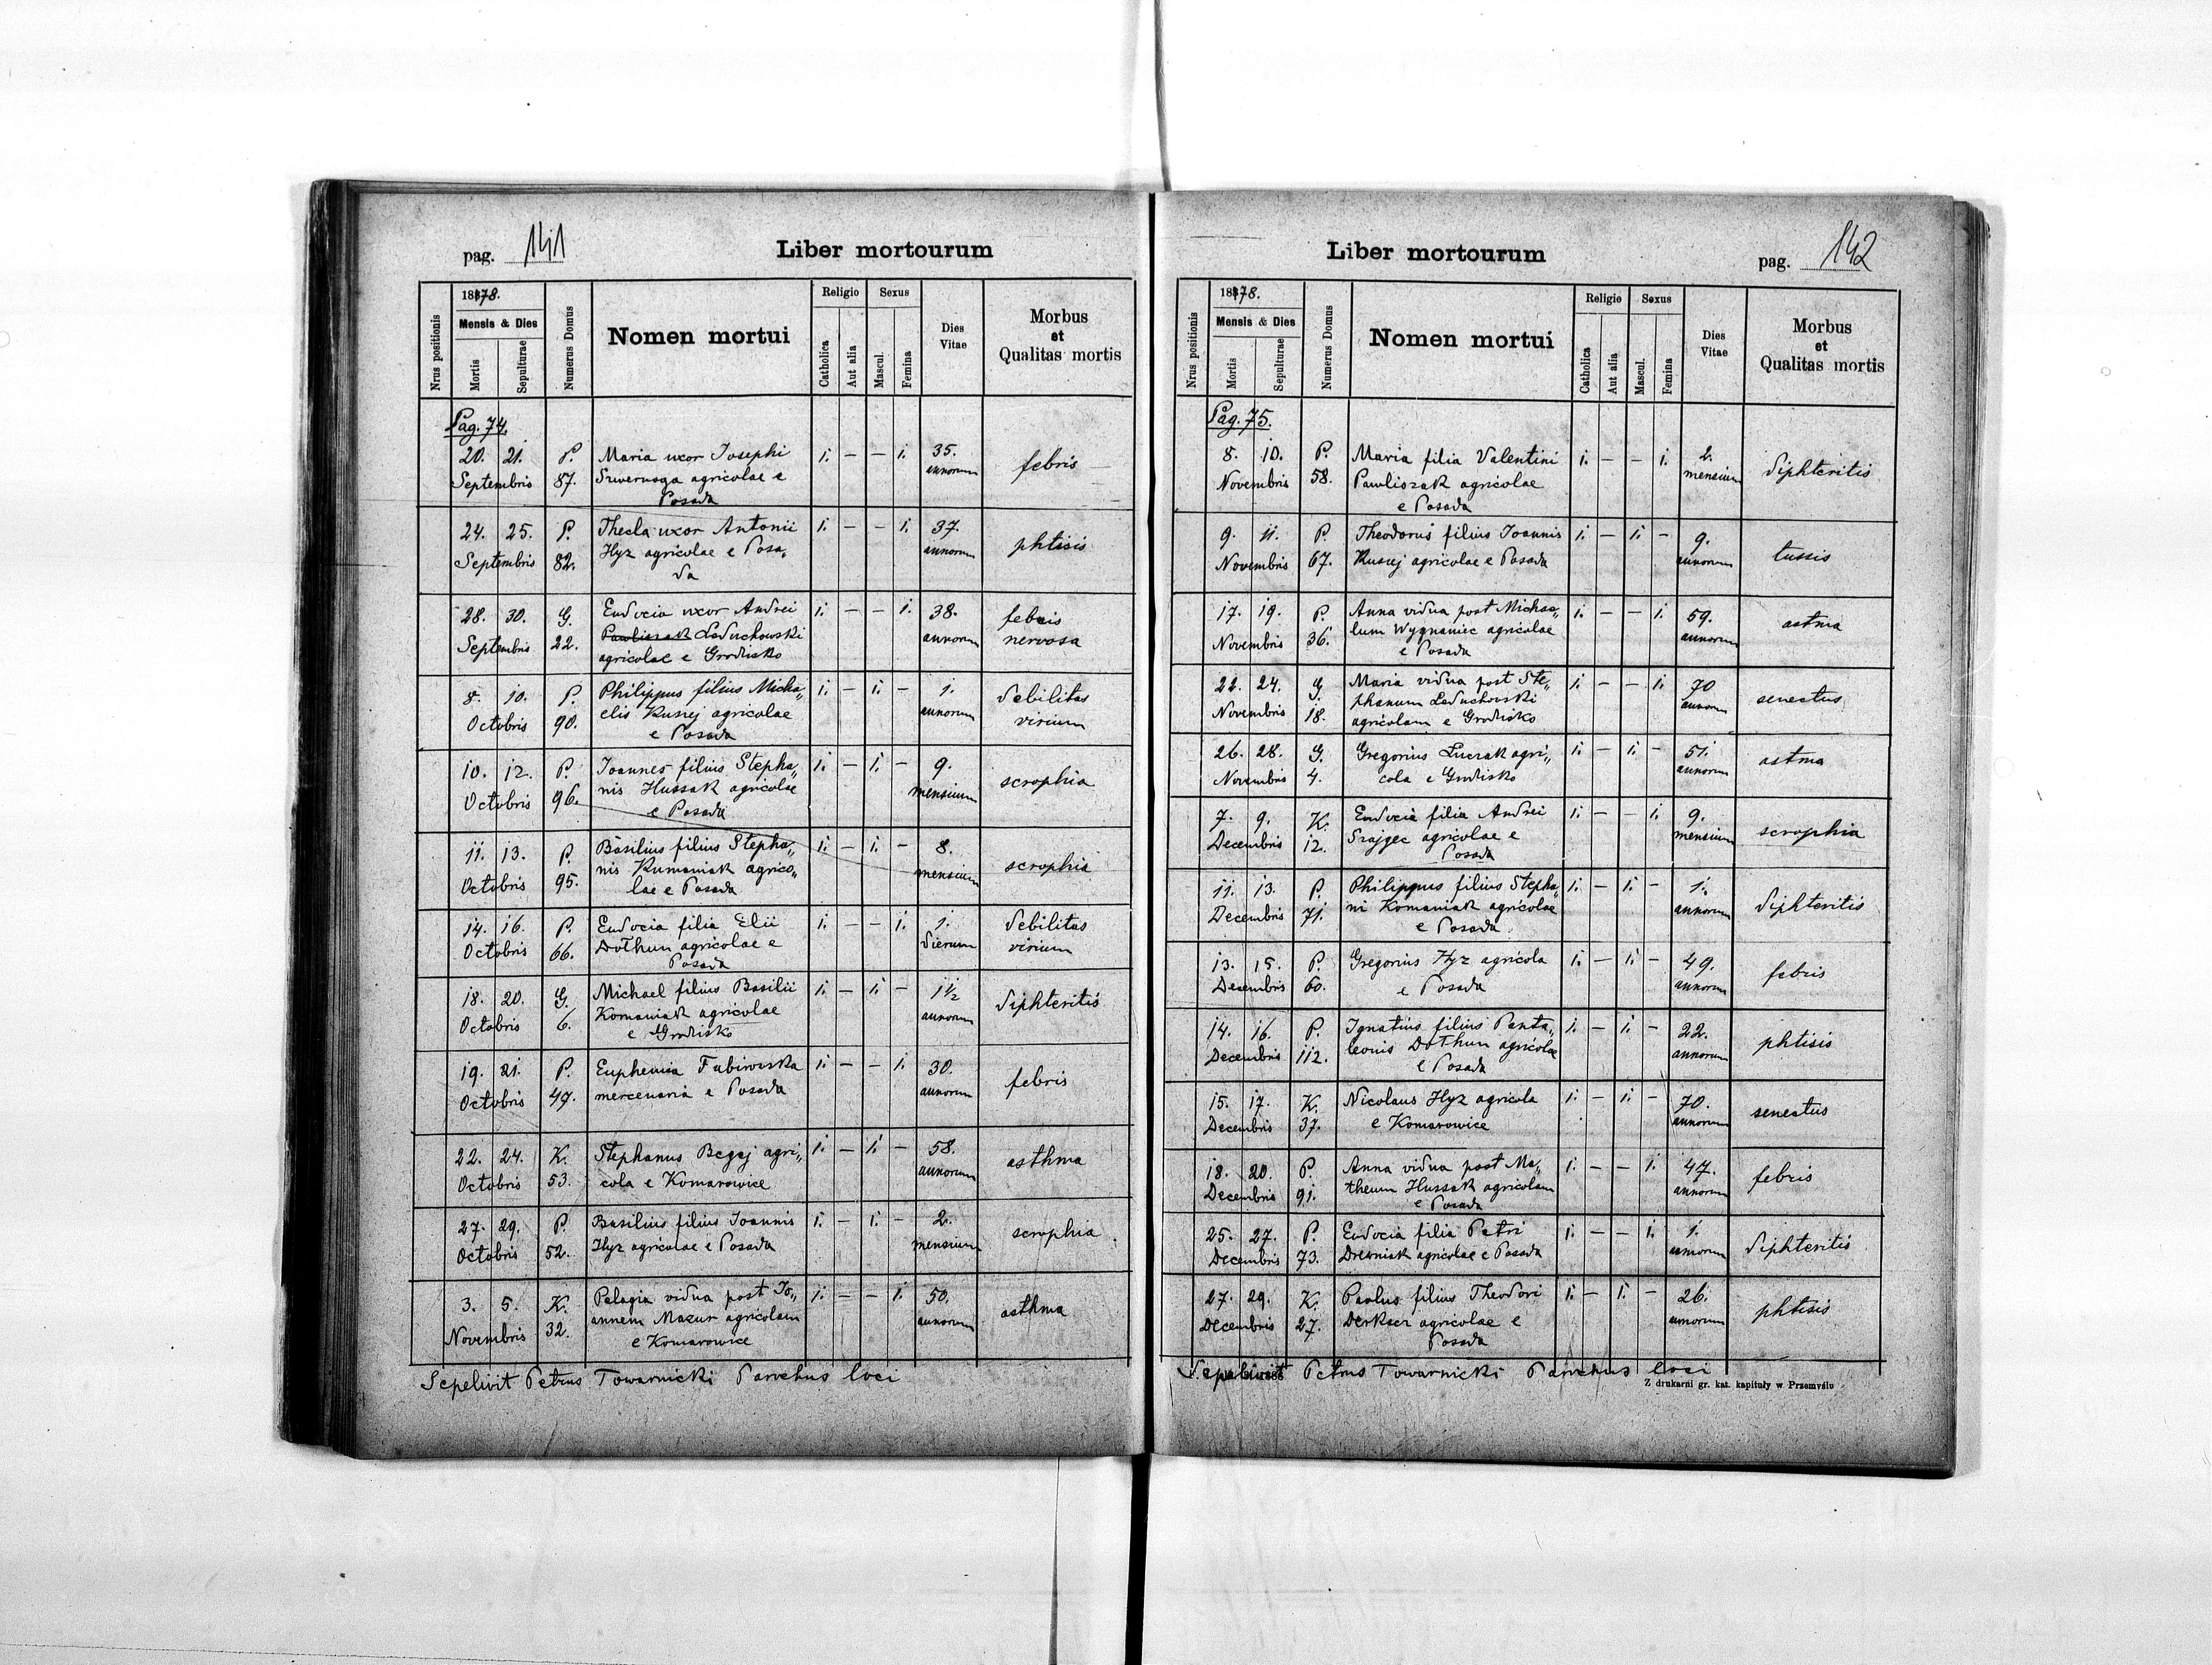 pag. 141
Liber mortourum
Nrus positionis
1878.
Mensis & Dies
Mortis
Sepulturae
Numerus Domus
Nomen mortui
Religio
Catholica
Aut alia
Sexus
Mascul.
Femina
Dies
Vitae
Morbus
et
Qualitas mortis
Pag. 74.
20. 21. P. Maria uxor Josephi 1. — — 1. 35. febris
Septembris 87. agricolae e annorum
Posada
24. 25. P. Thecla uxor Antonii 1. — — 1. 37. phtisis
Septembris 82. Hyz agricolae e Posa„ annorum
da
28. 30. G. Eudocia uxor Andrei 1. — — 1. 38. febris
Septembris 22. Pawliszak Leduchowski annorum nervosa
agricolae e Grodzisko
8. 10. P. Philippus filius Micha„ 1. — 1. — 1. debilitas
Octobris 90. elis Kusiej agricolae annorum virium
e Posada
10. 12. P. Joannes filius Stepha„ 1. — 1. — 9. scrophia
Octobris 96. nis Hussak agricolae mensium
e Posada
11. 13. P. Basilius filius Stepha„ 1. — 1. — 8. scrophia
Octobris 95. nis Kumaniak agrico„ mensium
lae e Posada
14. 16. P. Eudocia filia Elii 1. — — 1. 1. debilitas
Octobris 66. Dothun agricolae e dierum virium
Posada
18. 20. G. Michael filius Basilii 1. — 1. — 1 1/2 diphteritis
Octobris 6. Komaniak agricolae annorum
e Grodzisko
19. 21. P. Euphemia Fabirowska 1. — — 1. 30. febris
Octobris 49. mercenaria e Posada annorum
22. 24. K. Stephanus Begej agri„ 1. — 1. — 58. asthma
Octobris 53. cola e Komarowice annorum
27. 29. P. Basilius filius Joannis 1. — 1. — 2. scrophia
Octobris 52. Hyz agricolae e Posada mensium
3. 5. K. Pelagia vidua post Jo„ 1. — — 1. 50. asthma
Novembris 32. annem Mazur agricolam annorum
e Komarowice
Sepelivit Petrus Towarnicki Parochus loci
Liber mortourum
pag. 142
Nrus positionis
1878.
Mensis & Dies
Mortis
Sepulturae
Numerus Domus
Nomen mortui
Religio
Catholica
Aut alia
Sexus
Mascul.
Femina
Dies
Vitae
Morbus
et
Qualitas mortis
Pag. 75.
8. 10. P. Maria filia Valentini 1. — — 1. 2. diphteritis
Novembris 58. Pawliszak agricolae mensium
e Posada
9. 11. P. Theodorus filius Joannis 1. — 1. — 9. tussis
Novembris 67. Kusiej agricolae e Posada annorum
17. 19. P. Anna vidua post Micha„ 1. — — 1. 59. astma
Novembris 36. lum Wygnaniec agricolae annorum
e Posada
22. 24. G. Maria vidua post Ste„ 1. — — 1. 70 senectus
Novembris 18. phanum Leduchowski annorum
agricolam e Grodzisko
26. 28. G. Gregorius Luczak agri„ 1. — 1. — 51. astma
Novembris 4. cola e Grodzisko annorum
7. 9. K. Eudocia filia Andrei 1. — — 1. 9. scrophia
Decembris 12. Szajgec agricolae e mensium
Posada
11. 13. P. Philippus filius Stepha„ 1. — 1. — 1. diphteritis
Decembris 71. ni Komaniak agricolae annorum
e Posada
13. 15. P. Gregorius Hyz agricola 1. — 1. — 49. febris
Decembris 60. e Posada annorum
14. 16. P. Ignatius filius Panta„ 1. — 1. — 22. phtisis
Decembris 112. leonis Dothun agricolae annorum
e Posada
15. 17. K. Nicolaus Hyz agricola 1. — 1. — 70. senectus
Decembris 37. e Komarowice annorum
18. 20. P. Anna vidua post Ma„ 1. — — 1. 47. febris
Decembris 91. theum Hussak agricolam annorum
e Posada
25. 27. P. Eudocia filia Petri 1. — — 1. 1. diphteritis
Decembris 73. Drewniak agricolae e Posada annorum
27. 29. K. Paulus filius Theodori 1. — 1. — 26. phtisis
Decembris 27. Derkacz agricolae e annorum
Posada
Sepelivit Petrus Towarnicki Parochus loci
Z drukarni gr. kat. kapituły w Przemyślu